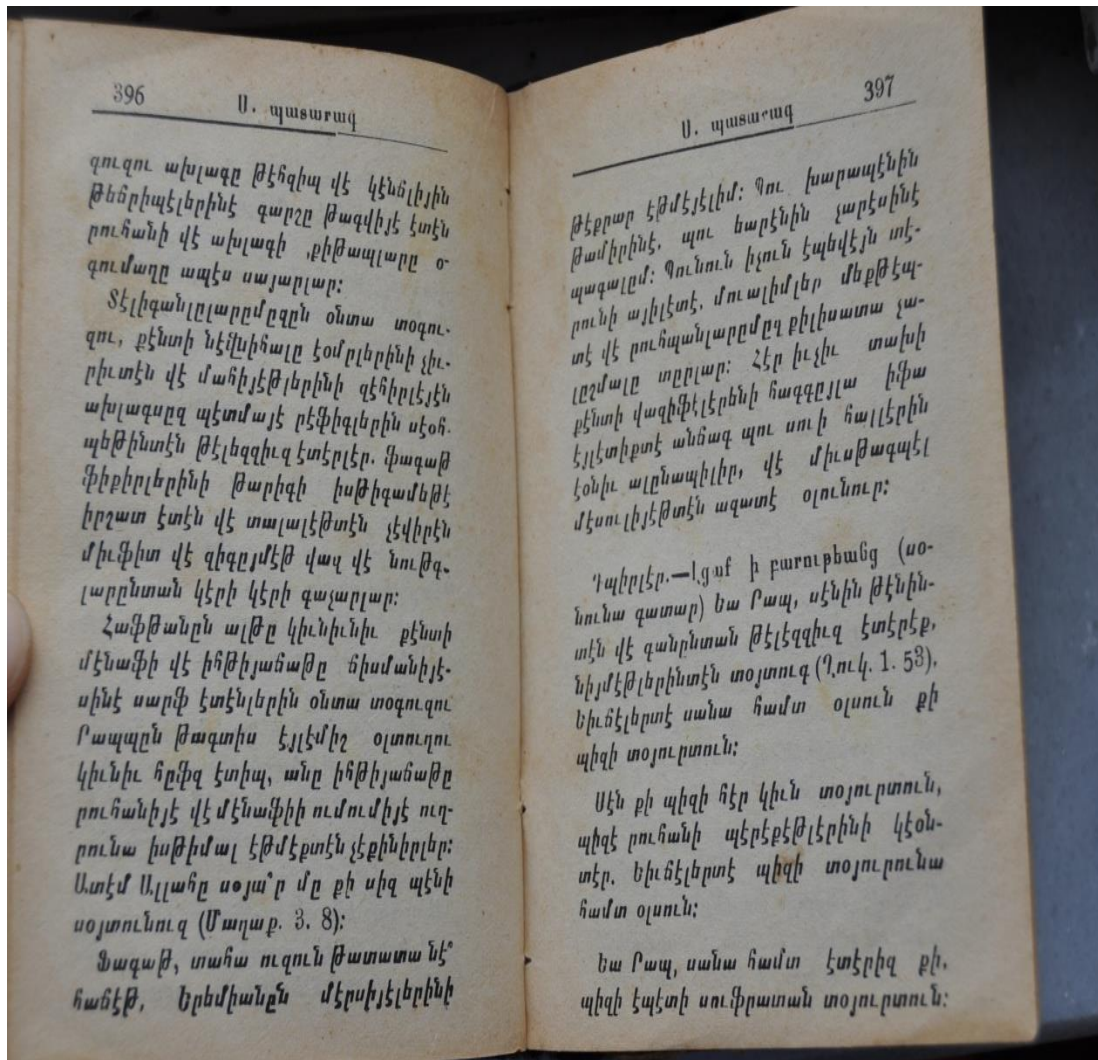 396
Ս. պատարագ
զուզու ախլագը թէհզիպ վէ կէնճլիյին
թեճրիպէլերինէ գարշը թագվիյէ էտէն
րուհանի վէ ախլագի քիթապլարը օ-
գումաղը ապէս սայարլար:
Տէլիգանլըլարըմըզըն օնտա տօգու-
զու, քէնտի նէֆսիհալը էօմրլերինի չիւ-
րիւտէն վէ մահիյէթլերինի զէհիրլէյէն
ախլագսըզ պէտմայէ րէֆիգլերին սէօհ-
պեթինտէն թէլեզզիւզ էտէրլէր. ֆագաթ
ֆիքիրլերինի թարիգի իսթիգամեթէ
իրշատ էտէն վէ տալալէթտէն չէվիրէն
միւֆիտ վէ զիգըյմէթ վազ վէ նութգ-
լարընտան կէրի կէրի գաչարլար:
Հաֆթանըն ալթը կիւնիւնիւ քէնտի
մէնաֆի վէ իհթիյաճաթը ճիսմանիյէ-
սինէ սարֆ էտէնլերին օնտա տօգուզու
Րապպըն թագտիս էյլէմիշ օլտուղու
կիւնիւ հըֆզ էտիպ, անը իհթիյաճաթը
րուհանիյէ վէ մէնաֆիի ումումիյէ ուղ-
րունա իսթիմալ էթմէքտէն չէքինիրլեր:
Ատէմ Ալլահը սօյա՞ր մը քի սիզ պէնի
սօյտունուզ (Մաղաք. 3. 8):
Ֆագաթ, տահա ուզուն թատատա նէ՞
հաճէթ, Երեմիանըն մէրսիյէլերինի
397
Ս. պատարագ
թէքրար էթմէյէլիմ: Պու խարապէնին
թամիրինէ, պու եարէնին չարէսինէ
պագալըմ: Պունուն իչուն էպեվէյն տէ-
րունի այիլէտէ, մուալիմլեր մեքթէպ-
տէ վէ րուհպանլարըմըզ քիլիսատա չա-
լըշմալը տըրլար: Հէր իւչիւ տախի
քէնտի վազիֆէլէրենի հագգըյլա իֆա
էյլէտիքտէ անճագ պու սուի հալլէրին
էօնիւ ալընապիլիր, վէ միւսթագպէլ
մէսուլիյէթտէն ազատէ օլունուր:
Դպիրլէր.—Լցաք ի բարութեանց (սօ-
նունա գատար) Եա Րապ, սէնին թէնին-
տէն վէ գանընտան թէլէզզիւզ էտէրէք,
նիյմէթլերինտէն տօյտուգ (Ղուկ. 1. 53),
Եիւճէլերտէ սանա համտ օլսուն քի
պիզի տօյուրտուն:
Սէն քի պիզի հէր կիւն տօյուրտուն,
պիզէ րուհանի պէրէքէթլէրինի կէօն-
տէր. Եիւճէլերտէ պիզի տօյուրունա
համտ օլսուն:
Եա Րապ, սանա համտ էտէրիզ քի,
պիզի էպէտի սուֆրատան տօյուրտուն: